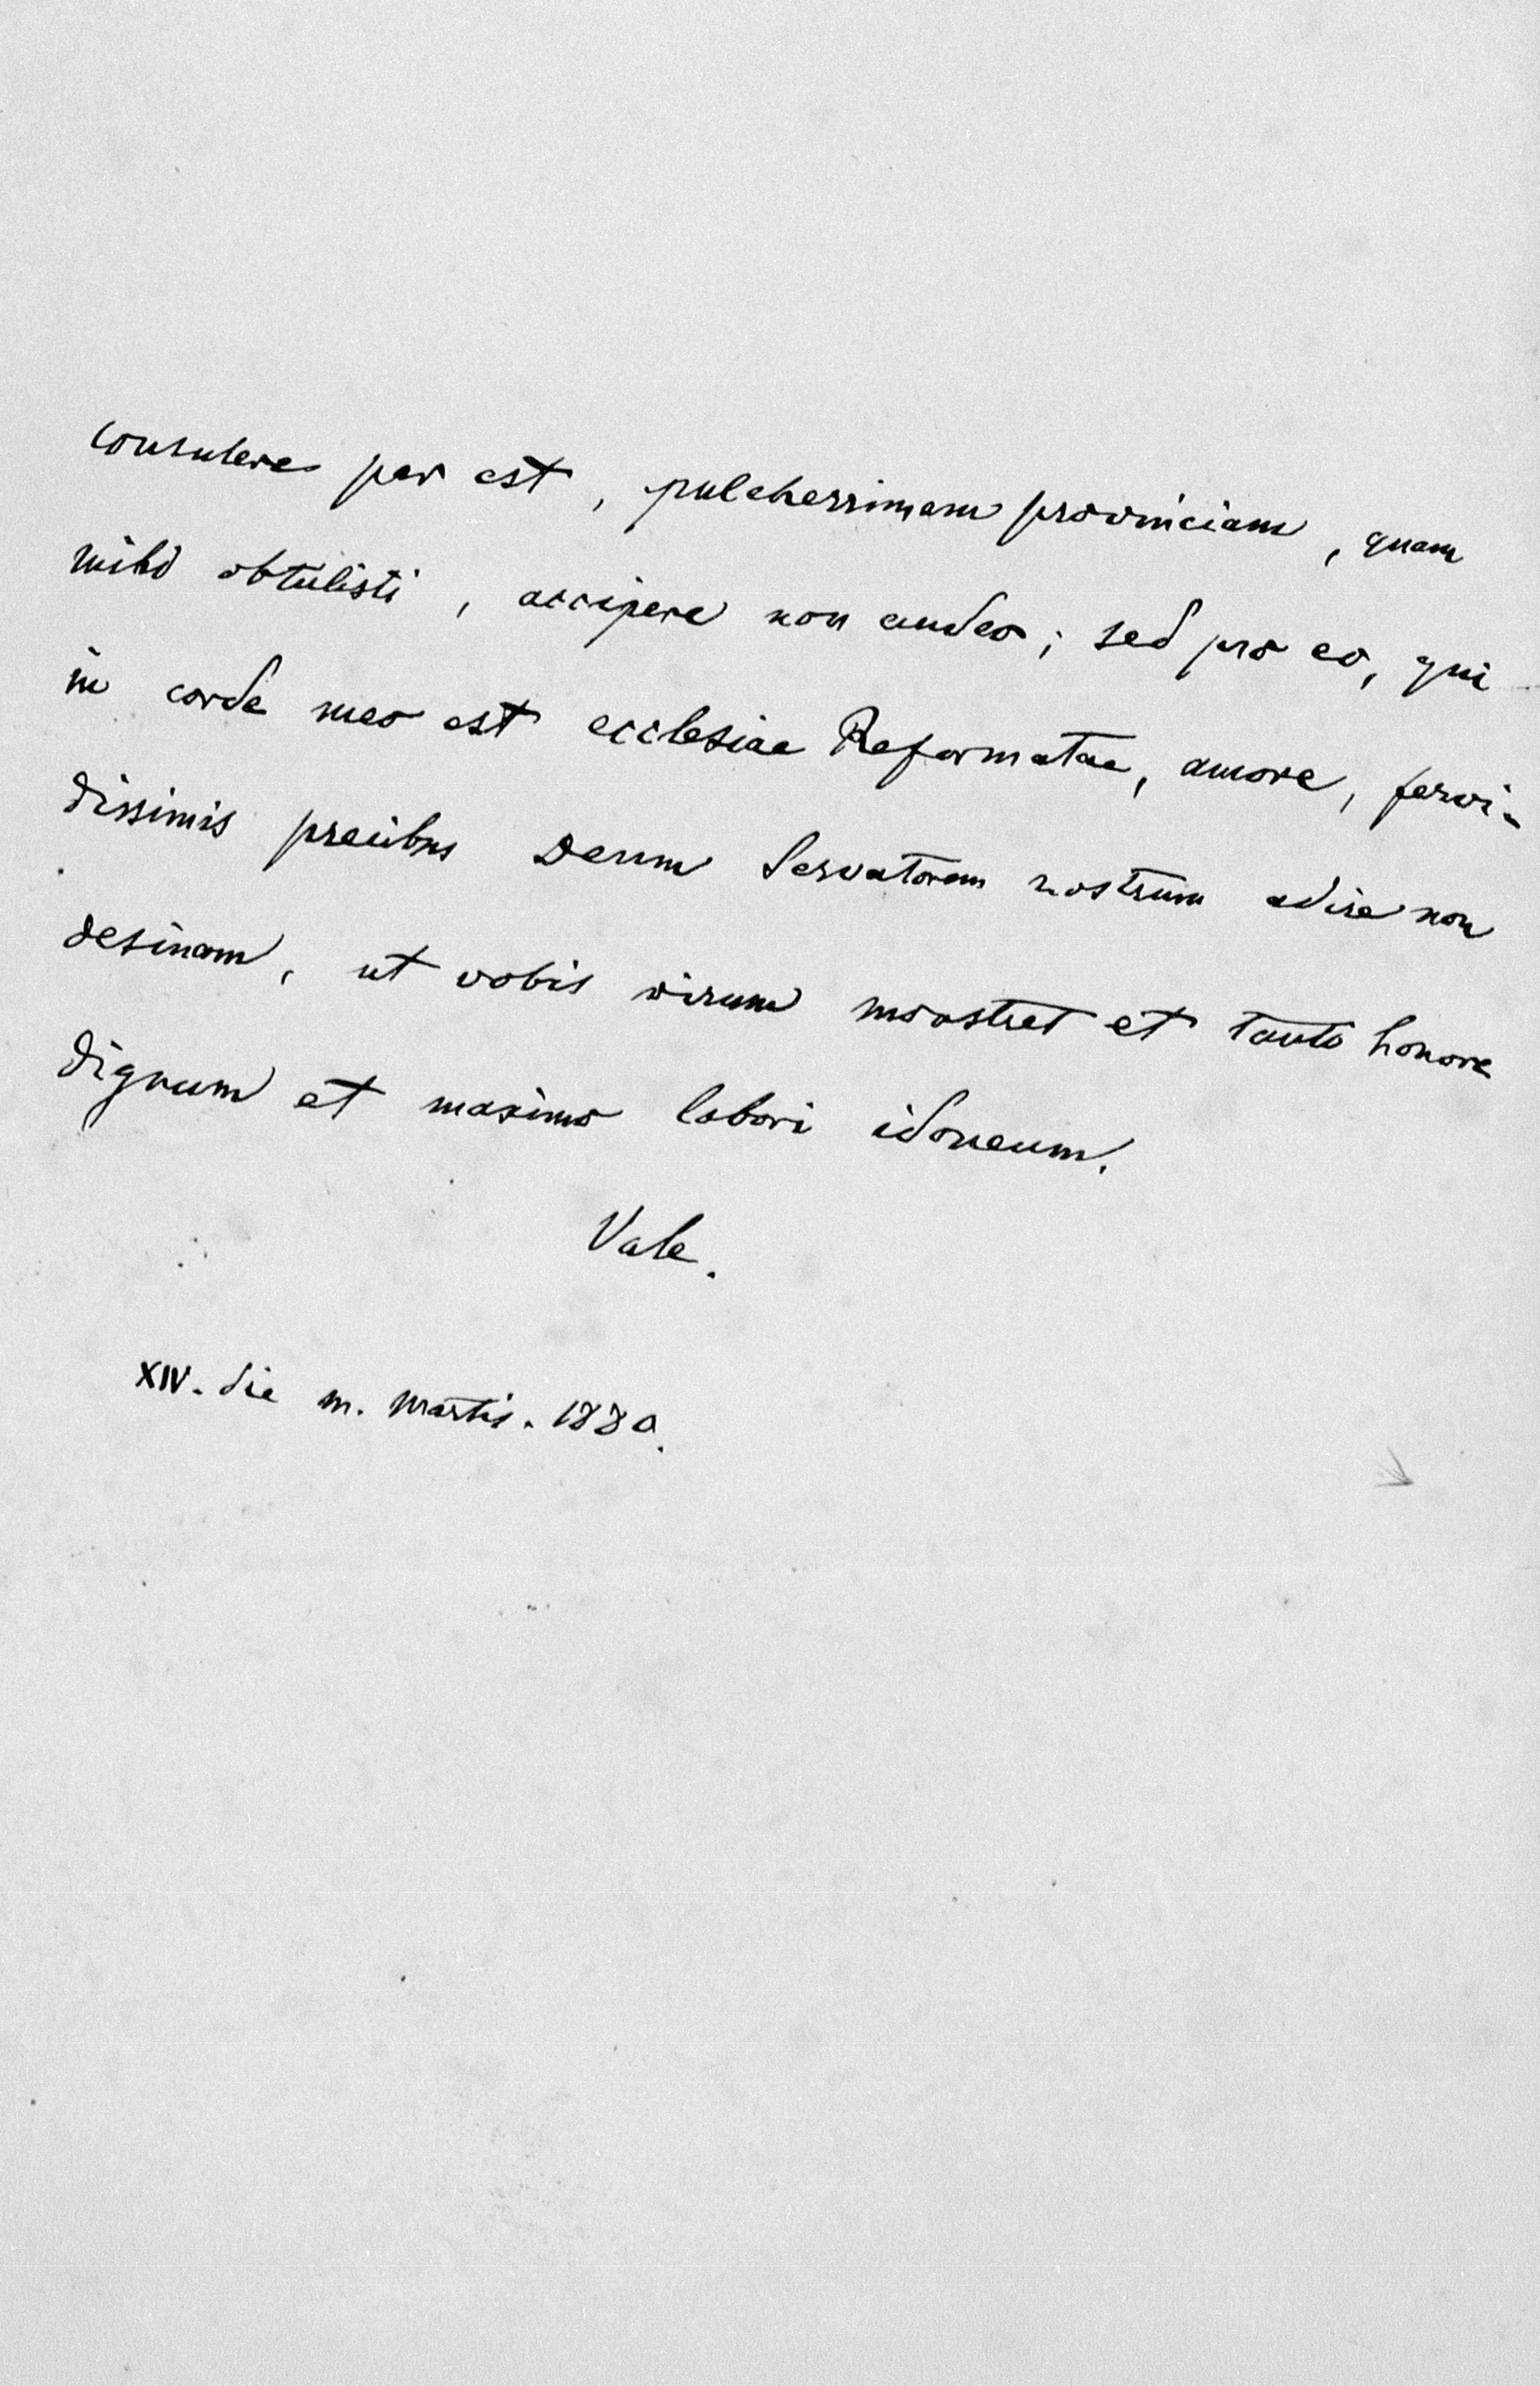 consulere par est, pulcherrimam provinciam, quam
mihi obtulisti, accipere non audeo; sed pro eo, qui
in corde meo est ecclesiae Reformatae, amore, fervi-
dissimis precibus Deum Servatorem nostrum adire non
desinam, ut vobis virum monstret et tanto honore
dignum et maximo labori idoneum.
Vale.
XIV. die m. Martis. 1880.